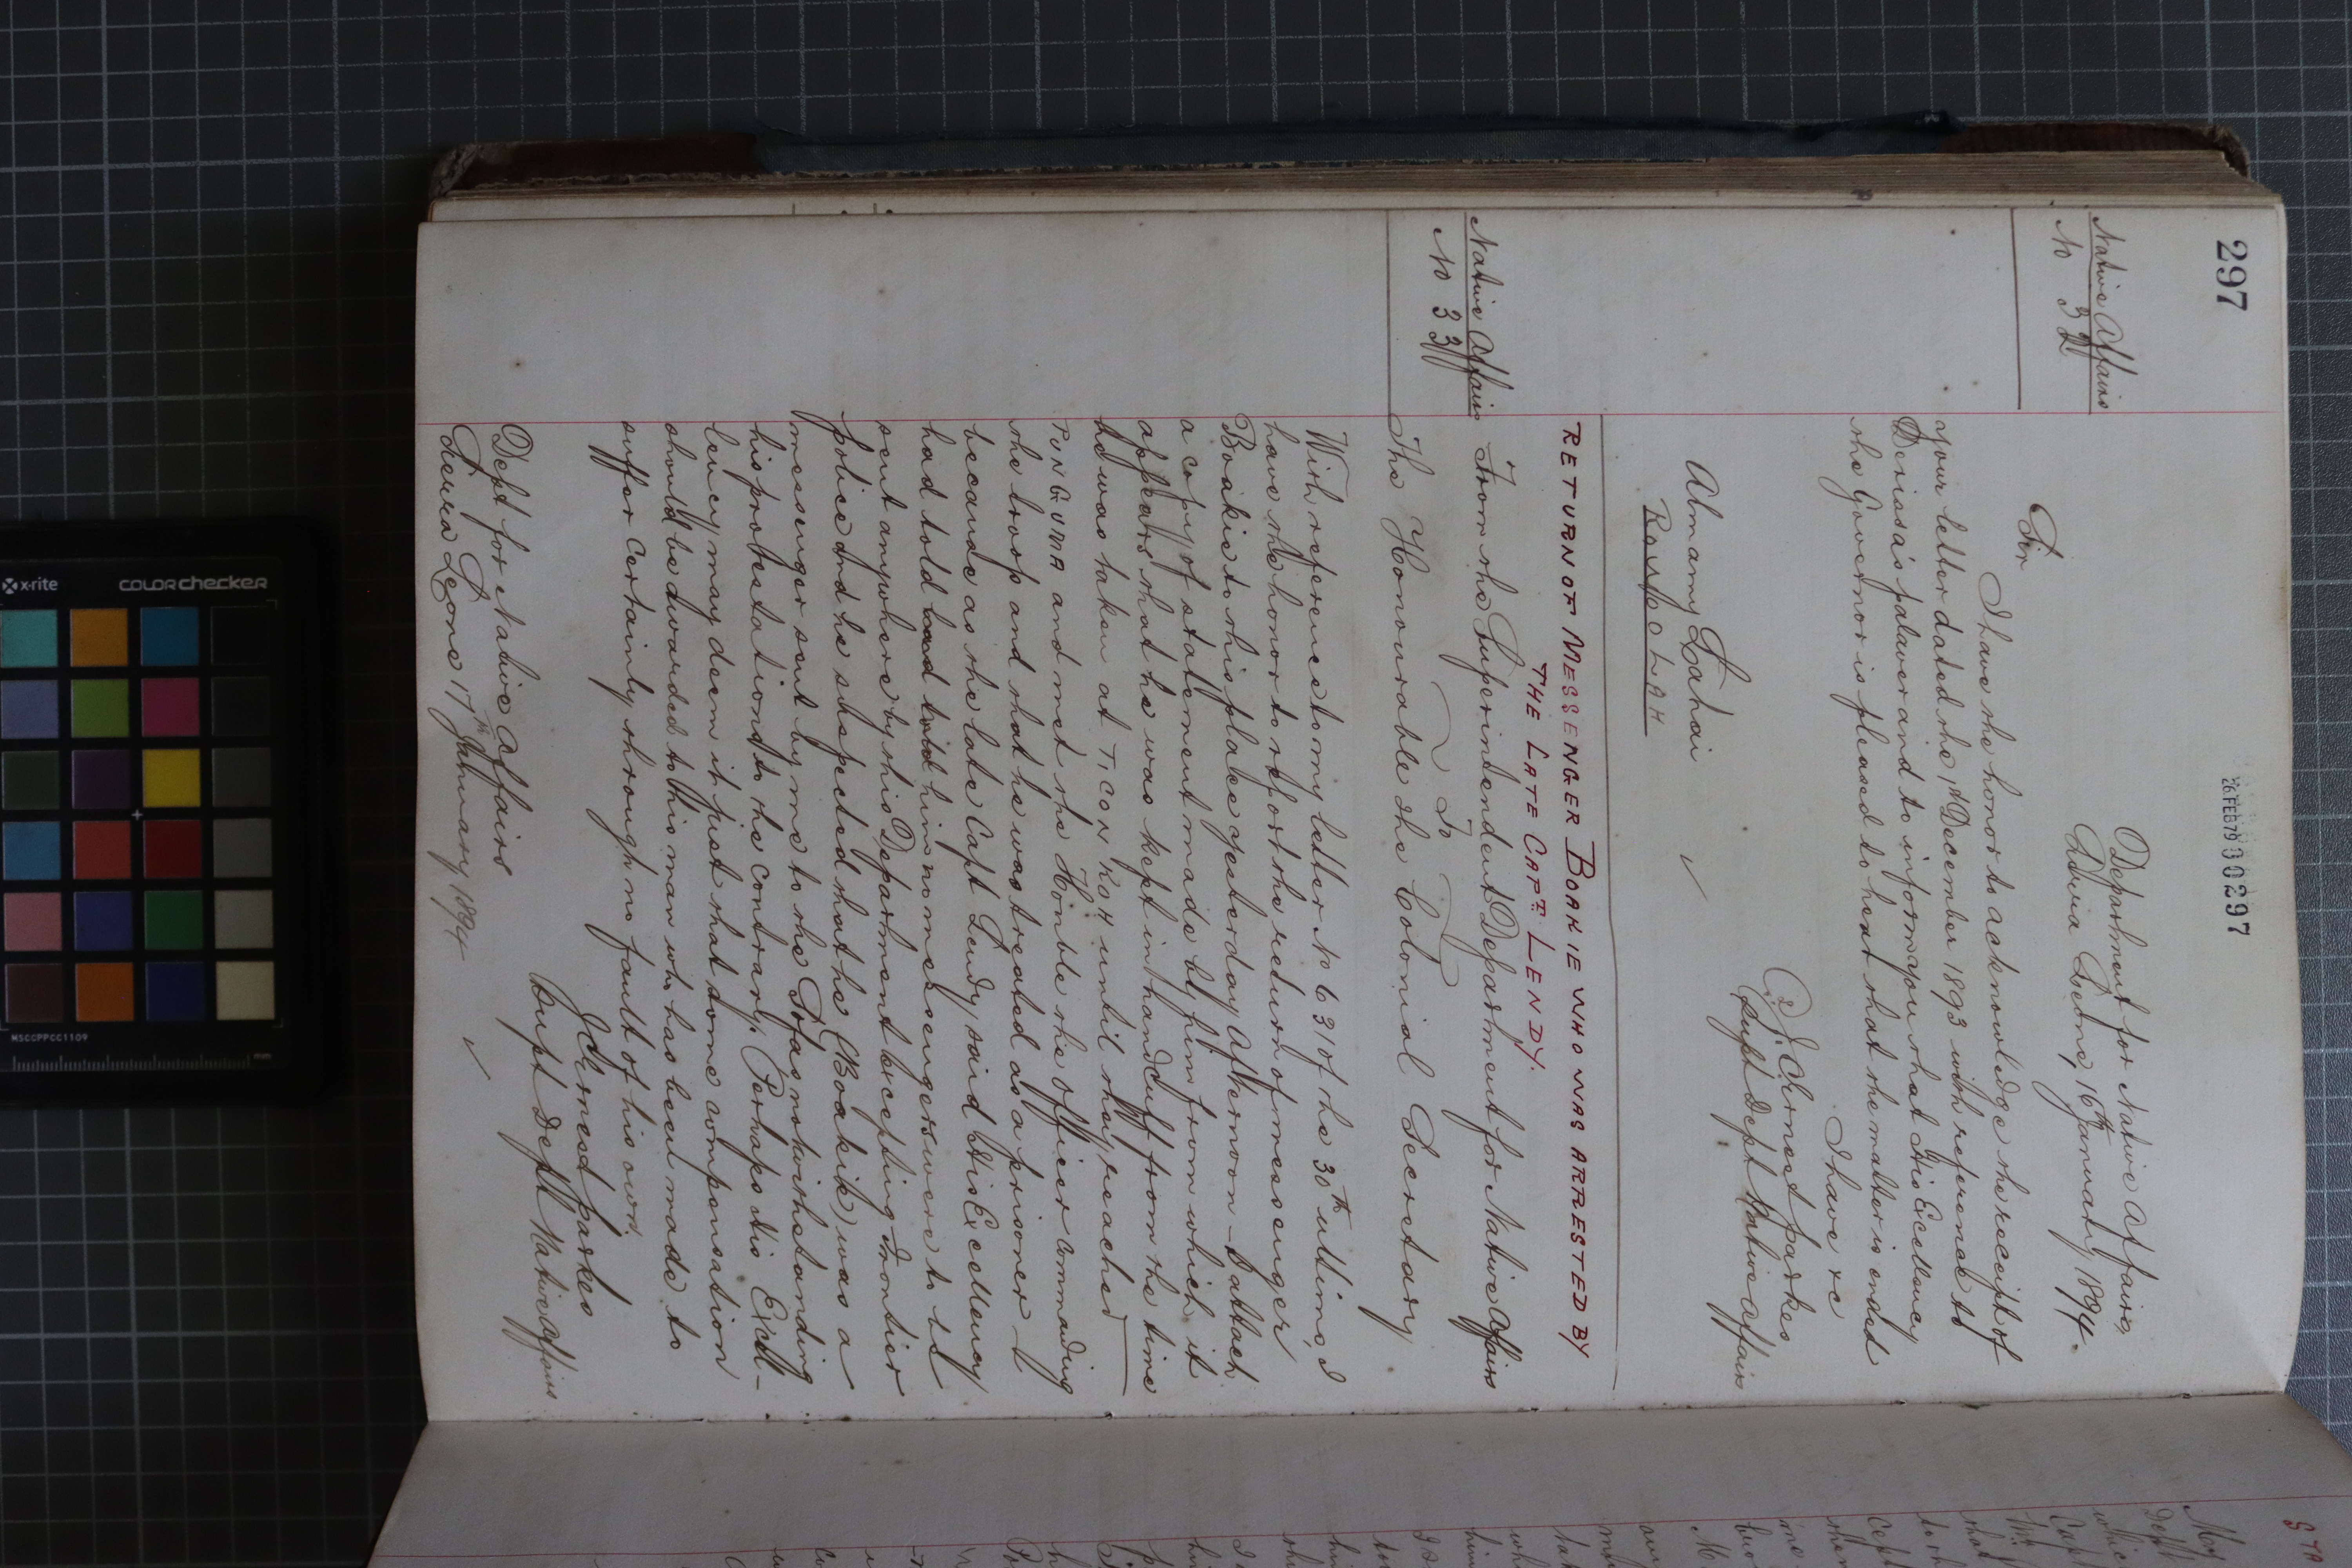 297
26 FEB 79 00297
Native Affairs
No 32
Department for Native Affairs,
Sierra Leone, 16th January 1894.
Sir
I have the honor to acknowledge the receipt of
your letter dated the 1st December 1893 with reference to
palaver and to inform you that His Excellency
the Governor is pleased to hear that the matter is ended
I have &c
J. C. Ernest Parkes
Supt Dept Native Affairs
Almamy Lahai
✓
RETURN OF MESSENGER BOAKIE WHO WAS ARRESTED BY
THE LATE CAPT. LENDY.
Native Affairs
No 33
From the Superintendent Department for Native Affairs
To
The Honourable the Colonial Secretary
With reference to my letter No 631 of the 30th ultimo, I
have the honor to report the return of messenger
Boakie to this place yesterday afternoon - I attach
a copy of statement made by him from which it
appears that he was kept in handcuff from the time
he was taken at TICONKOH until they reached
PUNGUMA and met the Honble the officer commanding
the troop and that he was treated as a prisoner
because as the late Capt Lendy said His Excellency
had told him no messengers were to be
sent anywhere by this Department excepting Frontier
police and he suspected that he (Boakie) was a
messenger sent by me to the Sofas notwithstanding
his protestations to the contrary. Perhaps His Excel-
lency may deem it just that some compensation
should be awarded to this man who has been made to
suffer certainly through no fault of his own.
J C Ernest Parkes
Supt Dept Native Affairs
Dept for Native Affairs
Sierra Leone 17th January 1894
✓
x-rite
COLORchecker
MSCCPPCC1109
mm